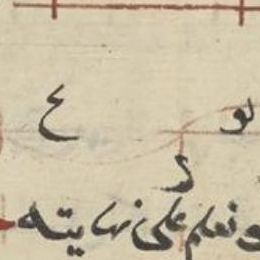 لو ع
د
ونعلم على نهايته